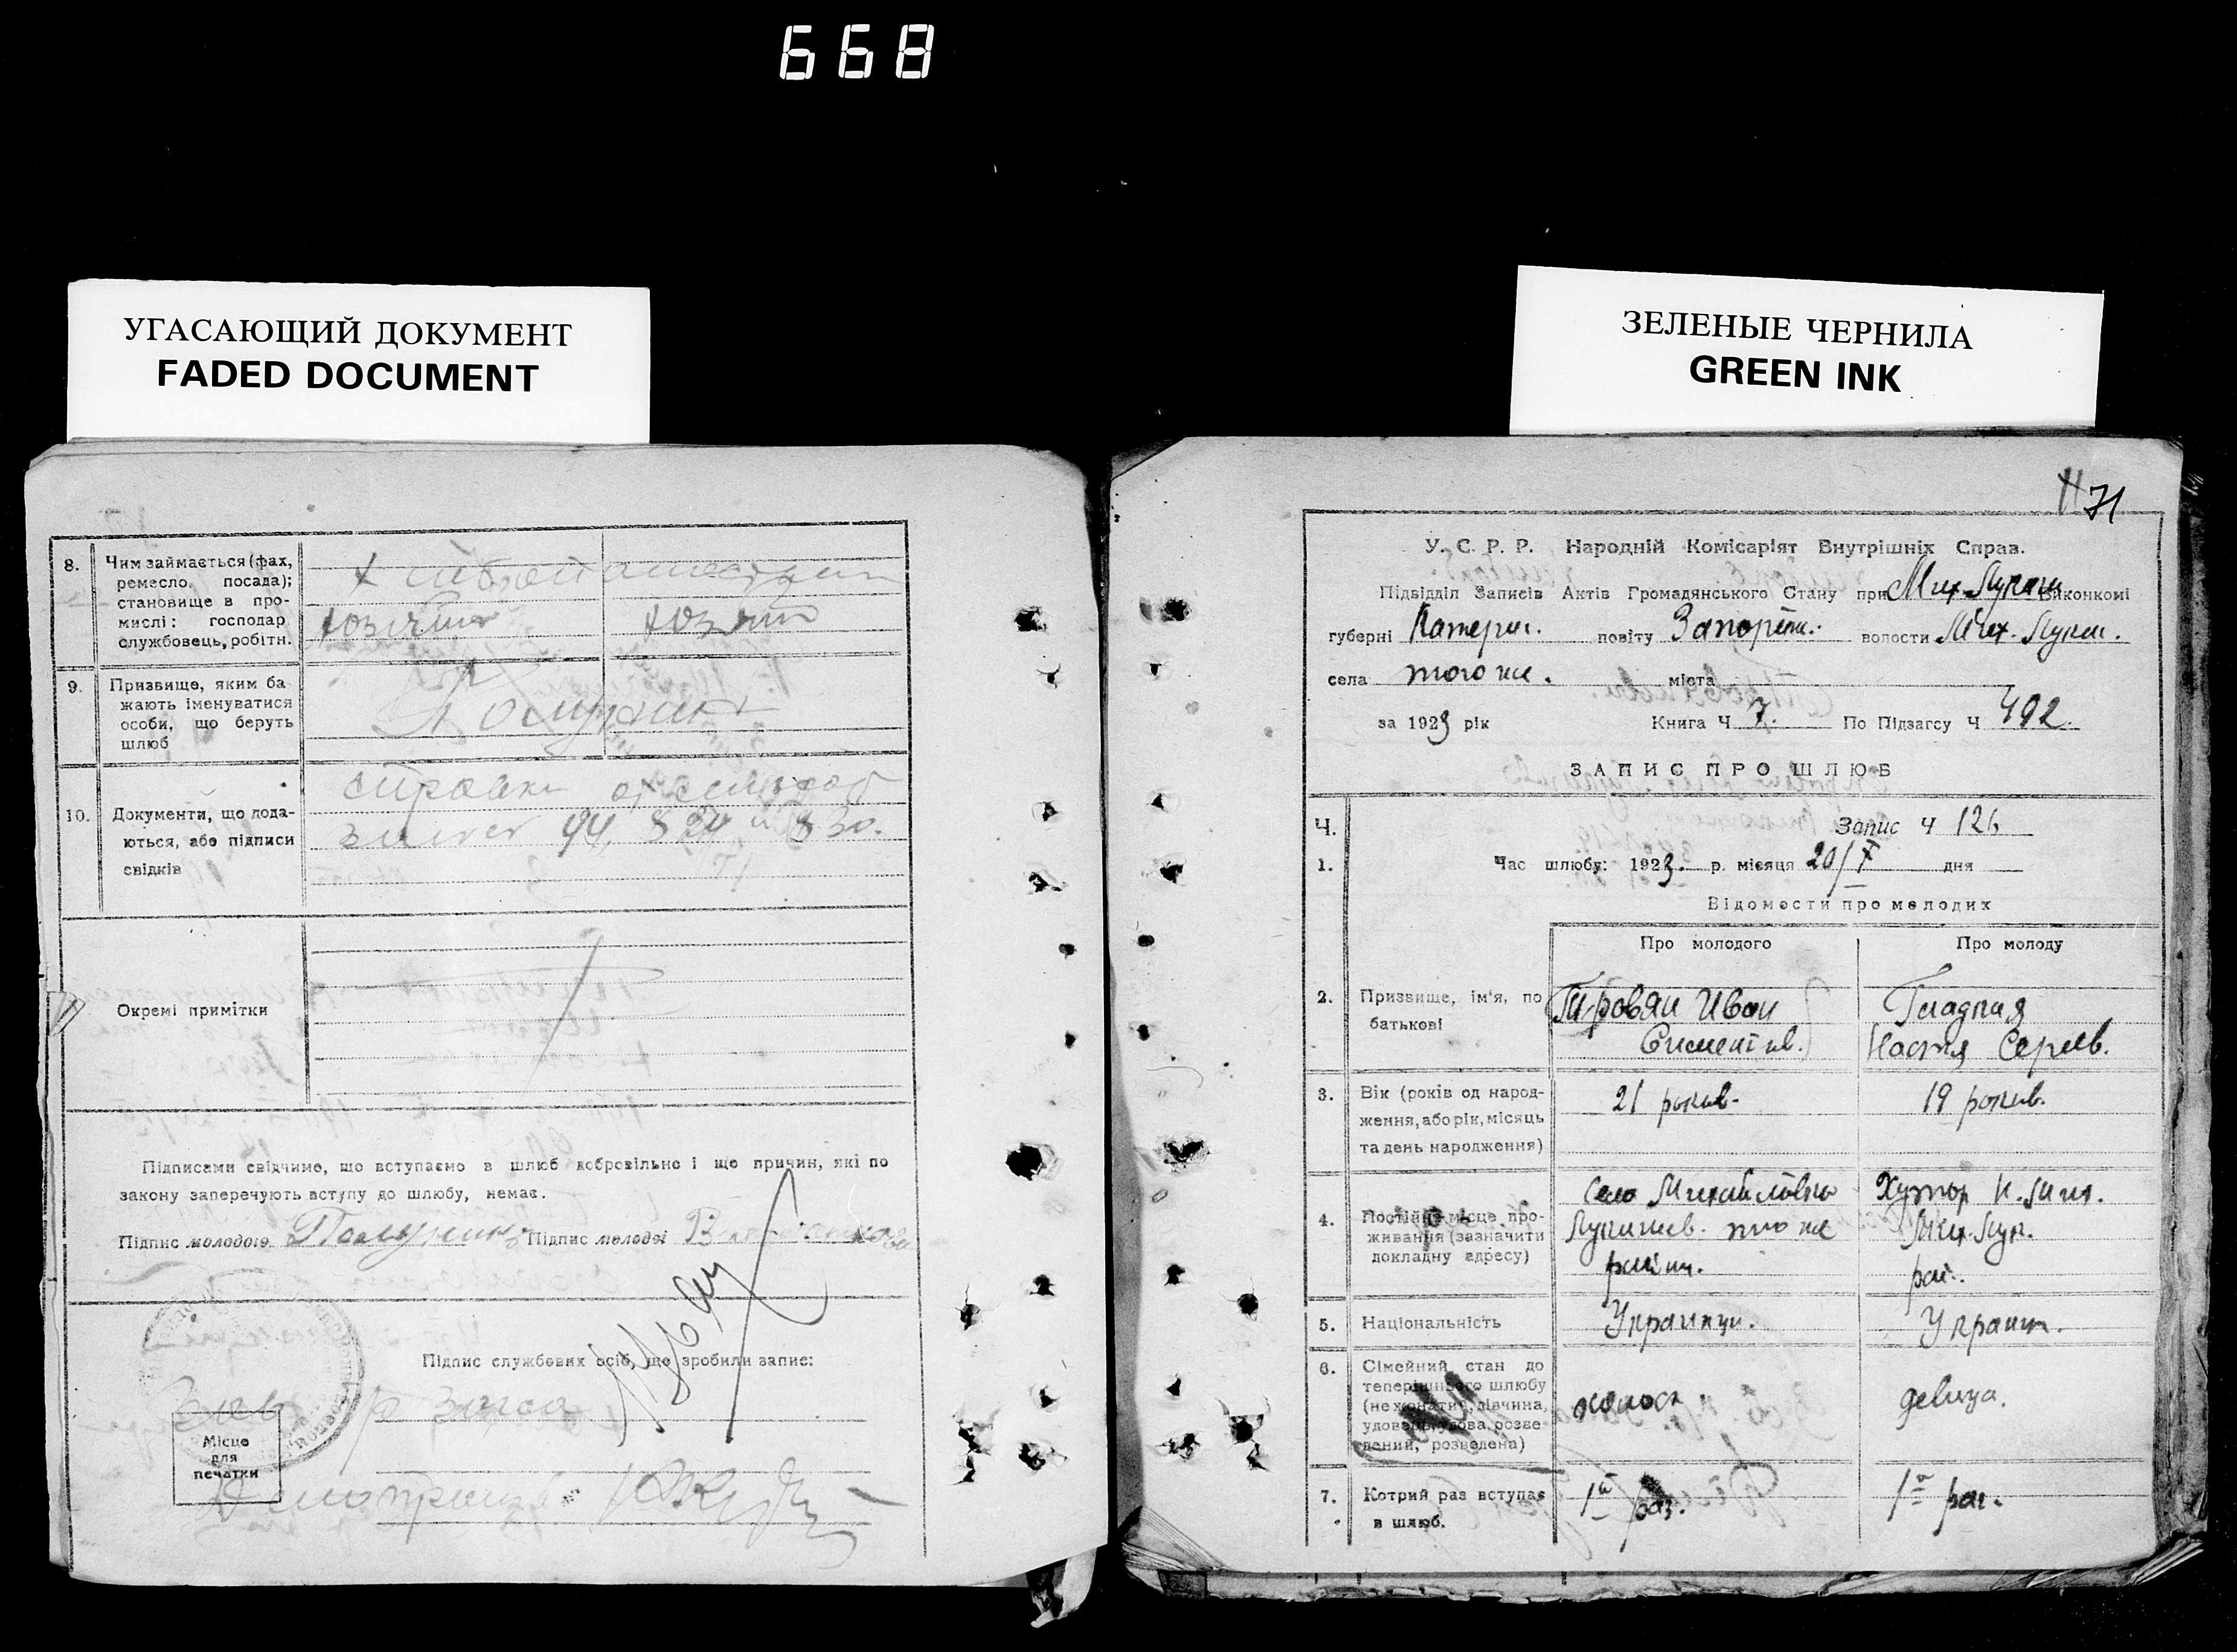 668
УГАСАЮЩИЙ ДОКУМЕНТ
FADED DOCUMENT
ЗЕЛЕНЫЕ ЧЕРНИЛА
GREEN INK
8. Чим займається (фах,
ремесло, посада);
становище в про-
мислі: господар
службовець, робітн.
9. Призвище, яким ба-
жають іменуватися
особи, що беруть
шлюб
10. Документи, що пода-
ються, або підписи
свідків
справки
94, 824 830.
Окремі примітки
Підписами свідчимо, що вступаємо в шлюб добровільно і що причин, які по
закону заперечують вступу до шлюбу, немає.
Підпис молодого Підпис молодої
Підпис службових осіб, що зробили запис:
Зав загса
Місце
для
печатки
71
У. С. Р. Р. Народній Комісаріят Внутрішніх Справ.
Підвідділ Записів Актів Громадянського Стану при Мих-Лукаш Виконкомі
губерні Катерин. повіту Запоріж. волости Мих. Лукаш.
села того же. міста
за 1923 рік Книга Ч 7. По Підзагсу Ч 492.
ЗАПИС ПРО ШЛЮБ
Ч. Запис Ч 126
1. Час шлюбу: 1923. р. місяця 20/X дня
Відомости про молодих
Про молодого Про молоду
2. Призвище, ім'я, по
батькові
Иван
Гладкая
Настя Сергіев.
3. Вік (років од народ-
ження, або рік, місяць
та день народження)
21 років. 19 років.
4. Постійне місце про-
живання (зазначити
докладну адресу)
Село Михайловка
Лукашев. того же
район.
Хутор Н. Мих.
Мих-Лук.
рай.
5. Національність Украинци. Украин.
6. Сімейний стан до
теперішнього шлюбу
(не жонатий, дівчина,
удовець, удова, розве-
дений, розведена)
холост девица.
7. Котрий раз вступає
в шлюб.
1й раз. 1й раз.